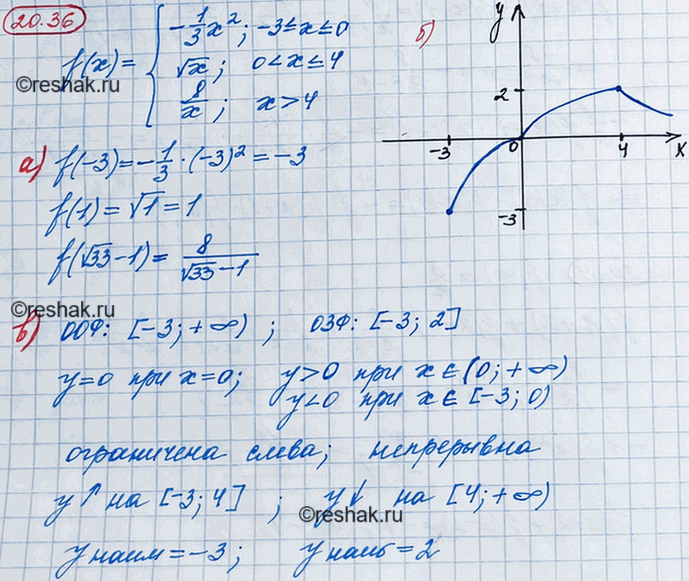 20.36
f(x) = { -1/3 x²; -3≤x≤0
√x; 0<x≤4
8/x; x>4
©reshak.ru
а) f(-3) = -1/3 · (-3)² = -3
f(1) = √1 = 1
f(√33-1) = 8/(√33-1)
©reshak.ru
б)
y
2
-3
0
4
x
-3
в) ООФ: [-3; +∞) ; ОЗФ: [-3; 2]
y=0 при x=0; y>0 при x∈(0; +∞)
y<0 при x∈[-3; 0)
ограничена слева; непрерывна
y↑ на [-3; 4] ; y↓ на [4; +∞)
©reshak.ru
y наим = -3; y наиб = 2